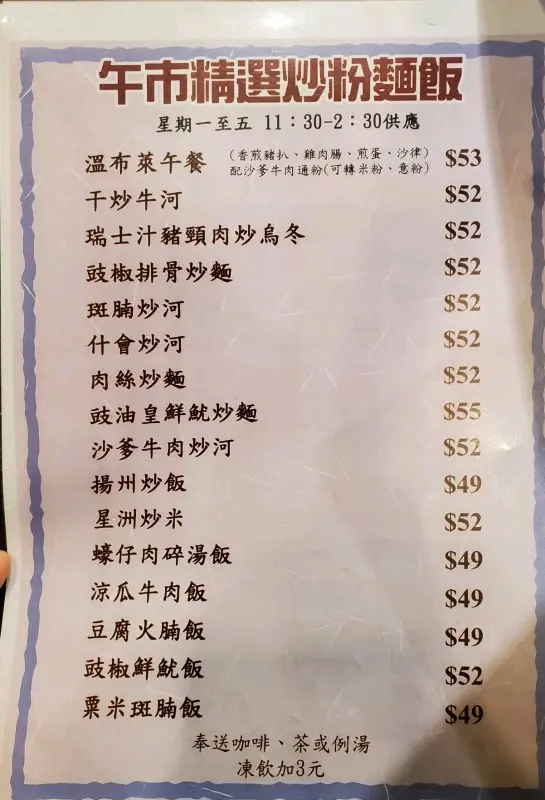 午市精選炒粉麵飯
星期一至五 11：30-2：30供應
溫布萊午餐 (香煎豬扒、雞肉腸、煎蛋、沙律) $53
配沙爹牛肉通粉(可轉米粉、意粉)
干炒牛河 $52
瑞士汁豬頸肉炒烏冬 $52
豉椒排骨炒麵 $52
斑腩炒河 $52
什會炒河 $52
肉絲炒麵 $52
豉油皇鮮魷炒麵 $55
沙爹牛肉炒河 $52
揚州炒飯 $49
星洲炒米 $52
蠔仔肉碎湯飯 $49
涼瓜牛肉飯 $49
豆腐火腩飯 $49
豉椒鮮魷飯 $52
粟米斑腩飯 $49
奉送咖啡、茶或例湯
凍飲加3元